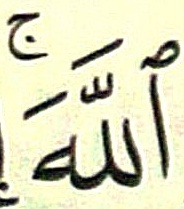 ٱللَّهَۚ